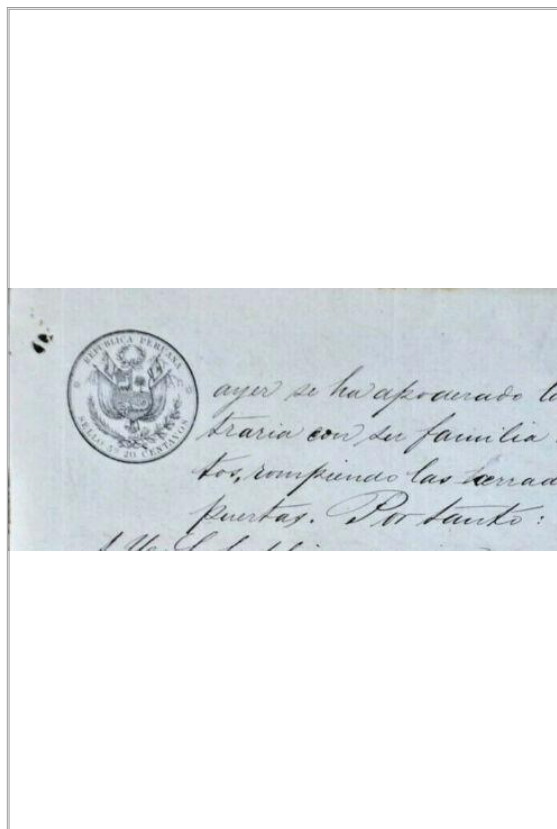 REPUBLICA PERUANA
SELLO 5º 20 CENTAVOS
ayer se ha apoderado
traria con su familia
tos, rompiendo las serrad
puertas. Por tanto: